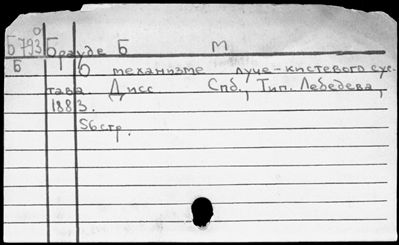 Б 793 Брауде Б М
Б О механизме луче-кистевого сус-
тава. Дисс Спб., Тип. Лебедева,
1883.
56 стр.